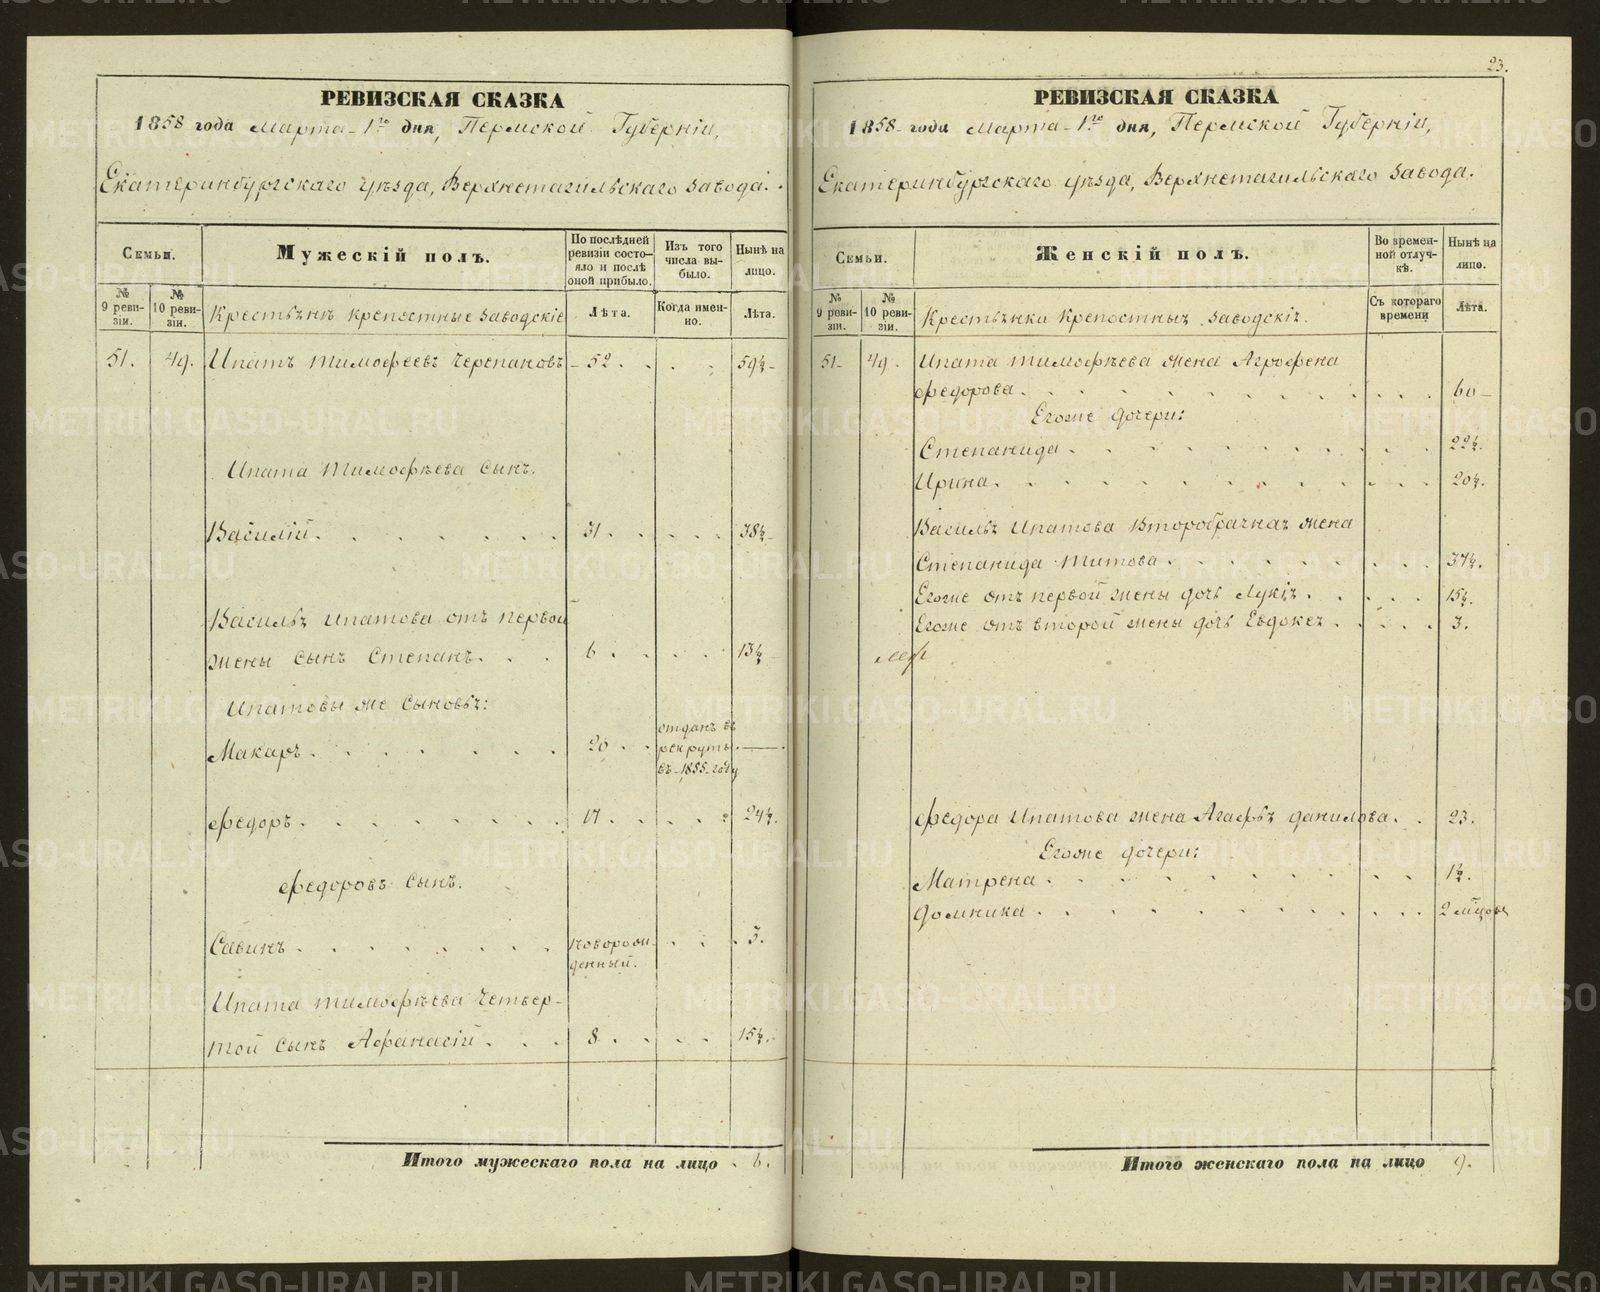 РЕВИЗСКАЯ СКАЗКА
1858 года Марта 1го дня, Пермской Губернiи,
Екатеринбургскаго уѣзда, Верхнетагильскаго завода.
Семьи.
Мужескiй полъ.
По послѣдней ревизiи состояло и послѣ оной прибыло.
Изъ того числа выбыло.
Нынѣ на лицо.
№ 9 ревизiи.
№ 10 ревизiи.
Крестьяне крепостные заводскiе
Лѣта.
Когда именно.
Лѣта.
51. 49. Ипатъ Тимофеевъ Черепановъ 52. 59½
Ипата Тимофѣева сынъ.
Василiй. 31. 38½
Василья Ипатова отъ первой
жены сынъ Степанъ. 6. 13½
Ипатовы же сыновья:
Макаръ. 20. отданъ въ рекруты въ 1855 году
Федоръ. 17. 24½.
Федоровъ сынъ.
Савинъ. новорожденный. 3.
Ипата Тимофѣева четвер-
той сынъ Афанасiй. 8. 15½.
Итого мужескаго пола на лицо 6.
23.
РЕВИЗСКАЯ СКАЗКА
1858 года Марта 1го дня, Пермской Губернiи,
Екатеринбургскаго уѣзда, Верхнетагильскаго завода.
Семьи.
Женскiй полъ.
Во временной отлучкѣ.
Нынѣ на лицо.
№ 9 ревизiи.
№ 10 ревизiи.
Крестьянки крепостныя заводскiя.
Съ котораго времени
Лѣта.
51. 49. Ипата Тимофѣева жена Агрофена
Федорова. 60
Егоже дочери:
Степанида. 22½.
Ирина. 20½.
Василья Ипатова второбрачная жена
Степанида Титова. 37½.
Егоже отъ первой жены дочь Лукiя. 15½.
Егоже отъ второй жены дочь Евдокея. 3.
Федора Ипатова жена Агафья Данилова. 23.
Егоже дочери:
Матрена. 1½.
Домника. 2 мѣсяца
Итого женскаго пола на лицо 9.
METRIKI.GASO-URAL.RU